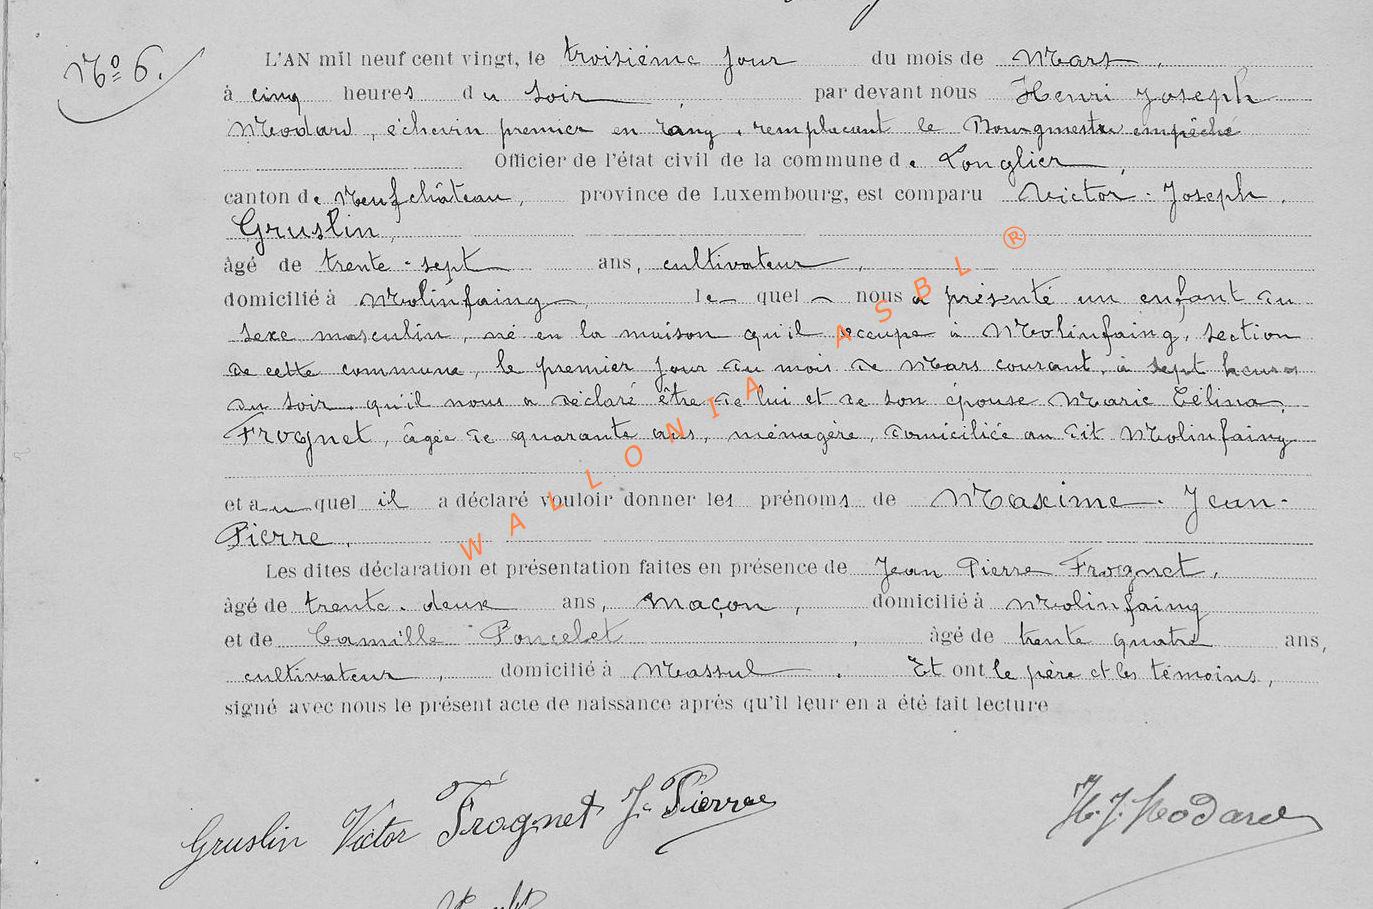 Nº 6.
L'AN mil neuf cent vingt, le troisième jour du mois de Mars,
à cinq heures du soir, par devant nous Henri Joseph
Modard, échevin premier en rang, remplaçant le Bourgmestre empêché
Officier de l'état civil de la commune de Longlier,
canton de Neufchâteau, province de Luxembourg, est comparu Victor-Joseph
Gruslin,
âgé de trente-sept ans, cultivateur,
domicilié à Molinfaing, lequel nous a présenté un enfant du
sexe masculin, né en la maison qu'il occupe à Molinfaing, section
de cette commune, le premier jour du mois de Mars courant, à sept heures
du soir, qu'il nous a déclaré être de lui et de son épouse Marie Célina,
Frognet, âgée de quarante ans, ménagère, domiciliée au dit Molinfaing
et auquel il a déclaré vouloir donner les prénoms de Maxime-Jean-
Pierre.
Les dites déclaration et présentation faites en présence de Jean Pierre Frognet,
âgé de trente-deux ans, maçon, domicilié à Molinfaing
et de Camille Poncelet, âgé de trente quatre ans,
cultivateur, domicilié à Massul. Et ont le père et les témoins,
signé avec nous le présent acte de naissance après qu'il leur en a été fait lecture
Gruslin Victor Frognet J. Pierre H. J. Modard
WALLONIA ASBL ®